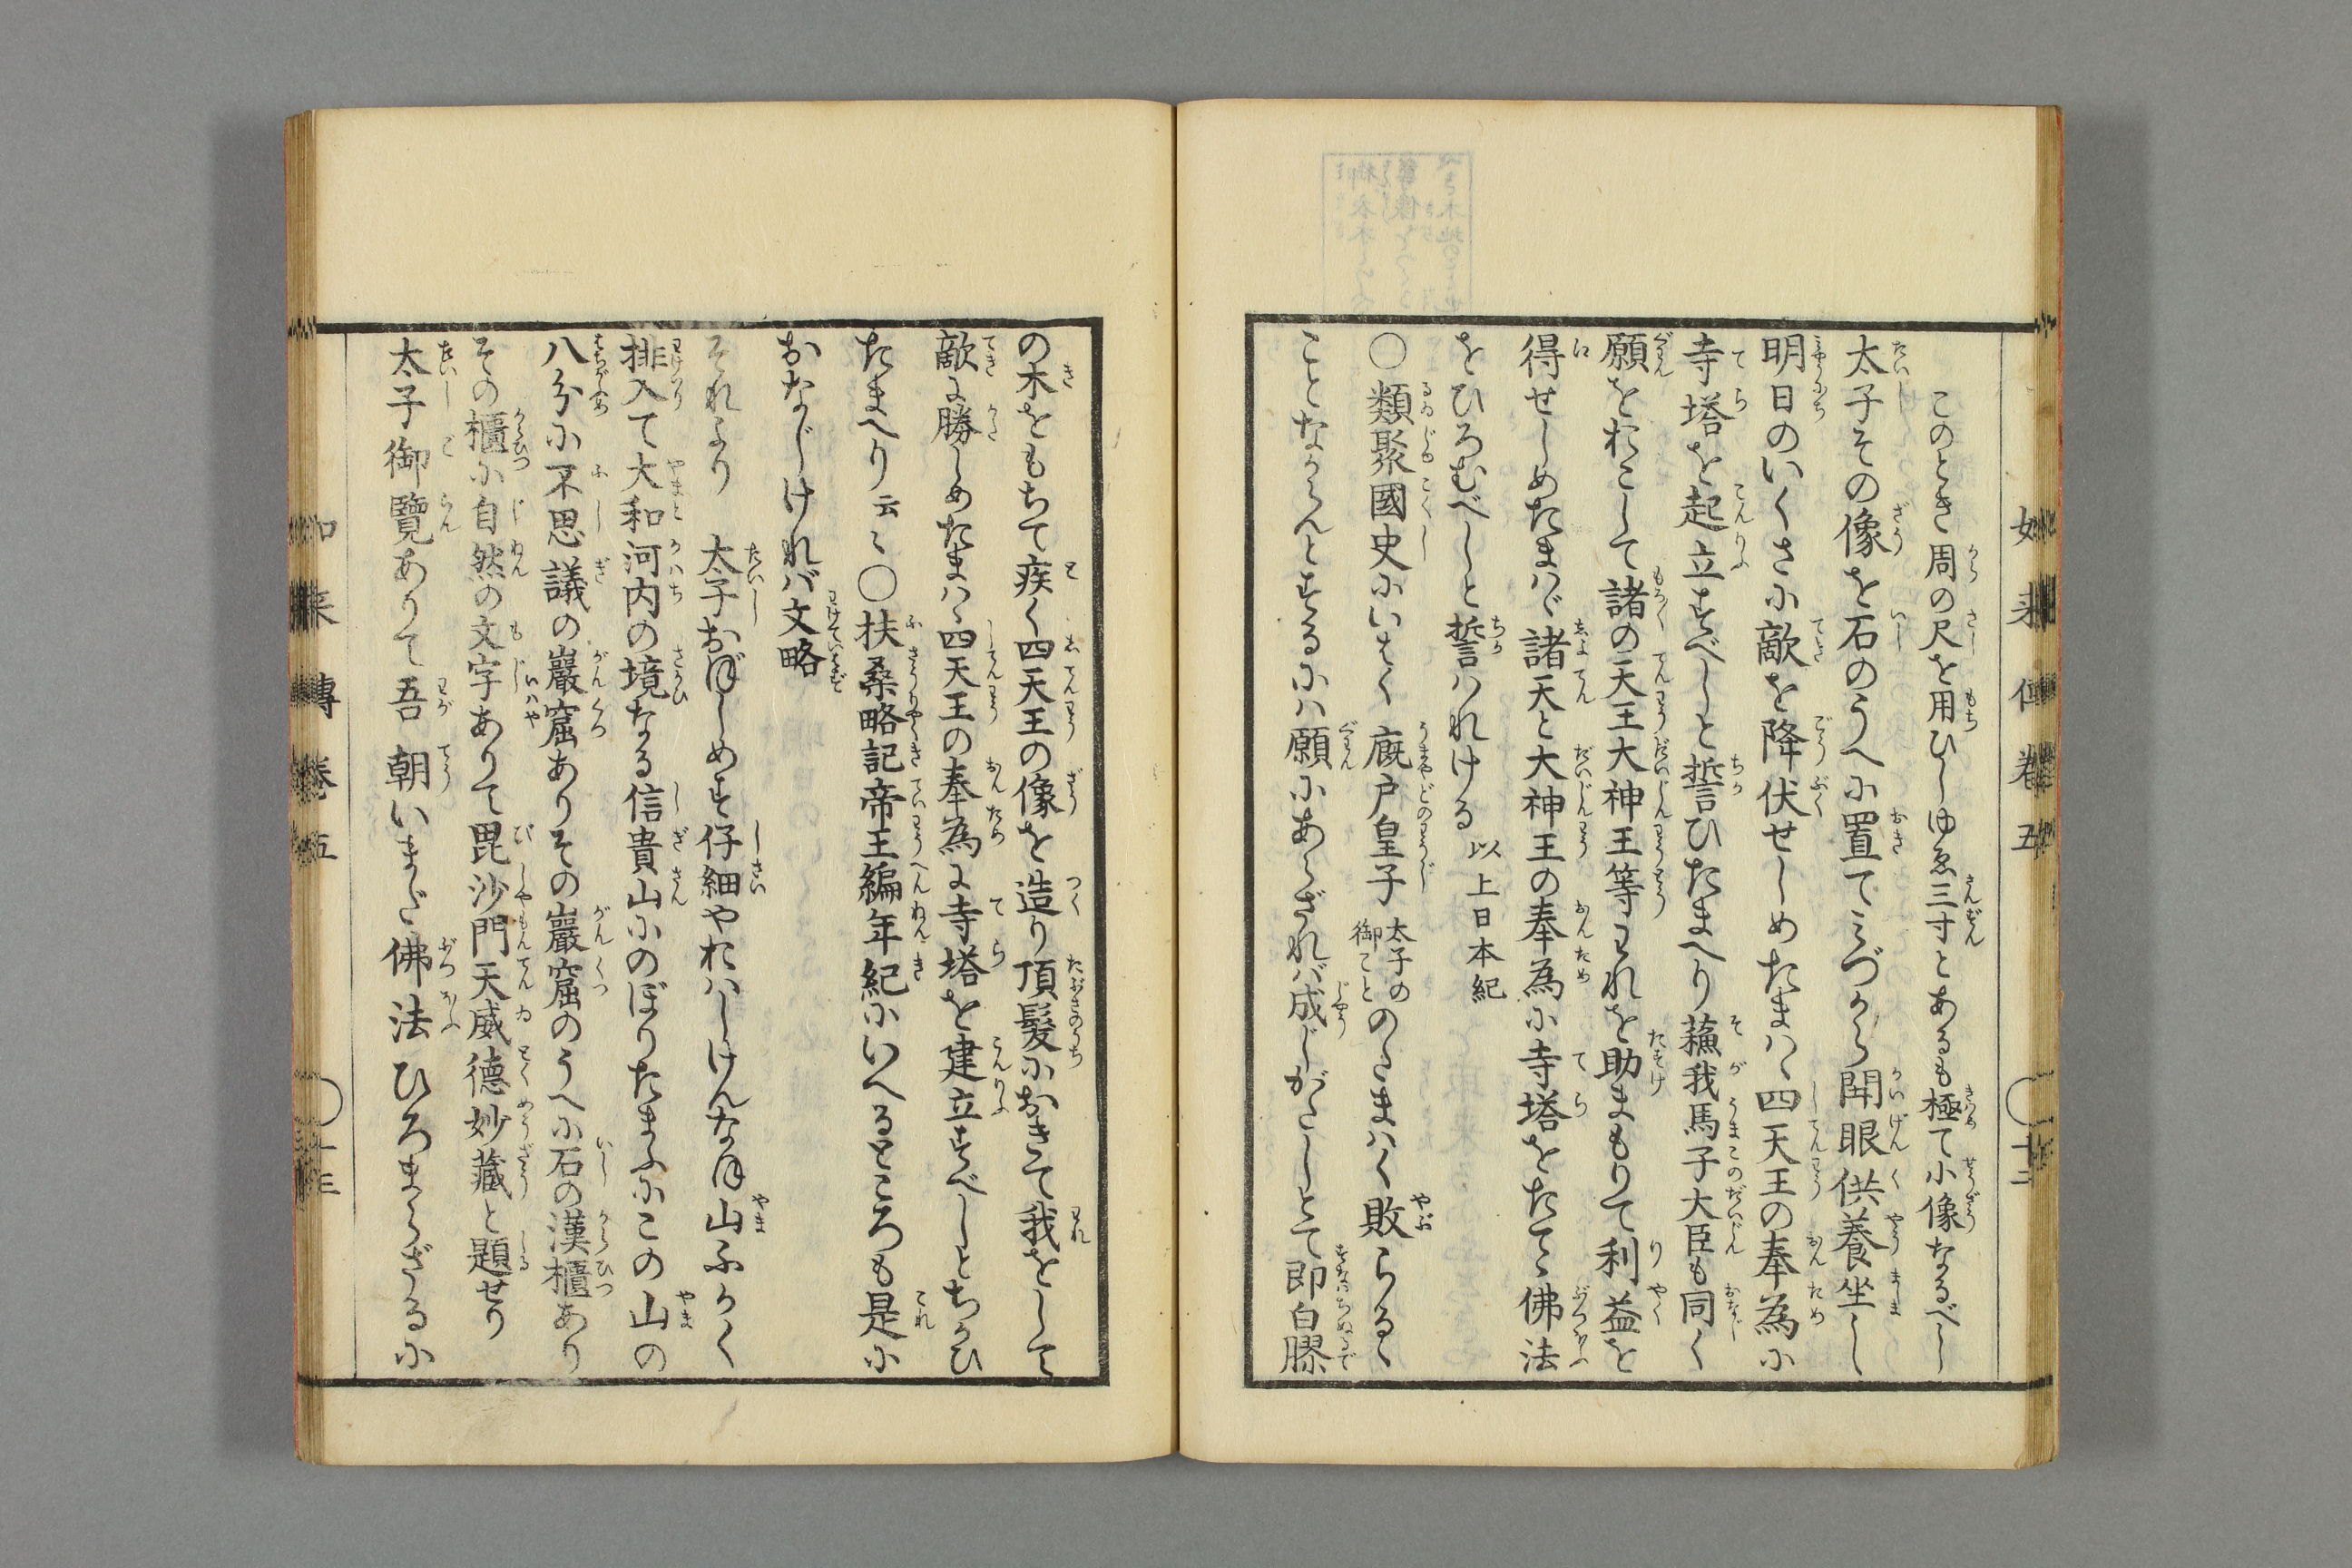 如来傳巻五
このとき周の尺を用ひしゆゑ三寸とあるも極て小像なるべし
太子その像を石のうへに置てみづから開眼供養坐し
明日のいくさに敵を降伏せしめたまはゞ四天王の奉為に
寺塔を起立すべしと誓ひたまへり蘓我馬子大臣も同く
願をおこして諸の天王大神王等われを助まもりて利益を
得せしめたまはゞ諸天と大神王の奉為に寺塔をたてゝ佛法
をひろむべしと誓はれける 以上日本紀
○類聚國史にいはく 厩戸皇子 太子の御こと のたまはく敗らるゝ
ことなからんとするには願にあらざれば成じがたしとて即白膠
の木をもちて疾く四天王の像を造り頂髪におきて我をして
敵に勝しめたまはゞ四天王の奉為に寺塔を建立すべしとちかひ
たまへり云々○扶桑略記帝王編年紀にいへるところも是に
おなじければ文略
それより 太子おぼしめす仔細やおはしけんなほ山ふかく
排入て大和河内の境なる信貴山にのぼりたまふにこの山の
八分に不思議の巖窟ありその巖窟のうへに石の漢櫃あり
その櫃に自然の文字ありて毘沙門天威徳妙藏と題せり
太子御覽ありて吾 朝いまだ佛法ひろまらざるに
如来傳巻五